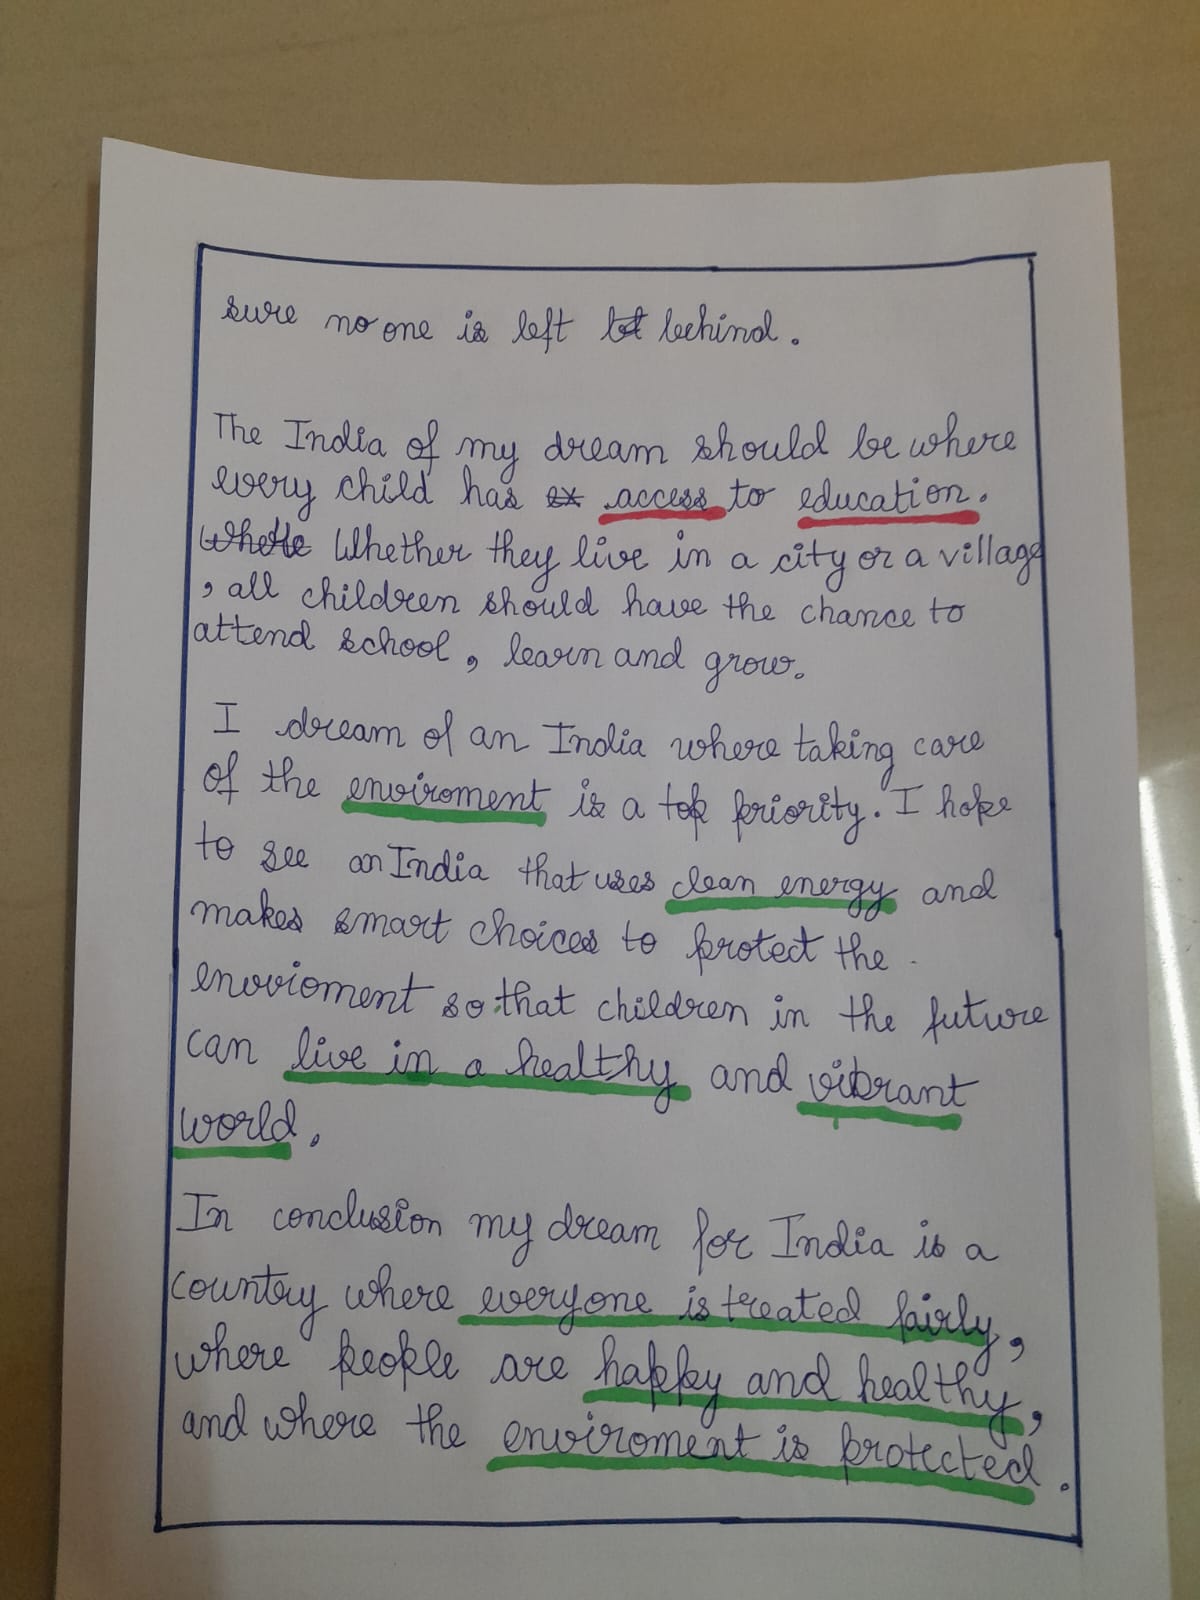 sure no one is left bt behind.
The India of my dream should be where
every child has ex access to education.
Whethe Whether they live in a city or a village
, all children should have the chance to
attend school, learn and grow.
I dream of an India where taking care
of the enviroment is a top priority. I hope
to see an India that uses clean energy and
makes smart choices to protect the
envvioment so that children in the future
can live in a healthy and vibrant
world.
In conclusion my dream for India is a
country where everyone is treated fairly,
where people are happy and healthy,
and where the enviroment is protected.